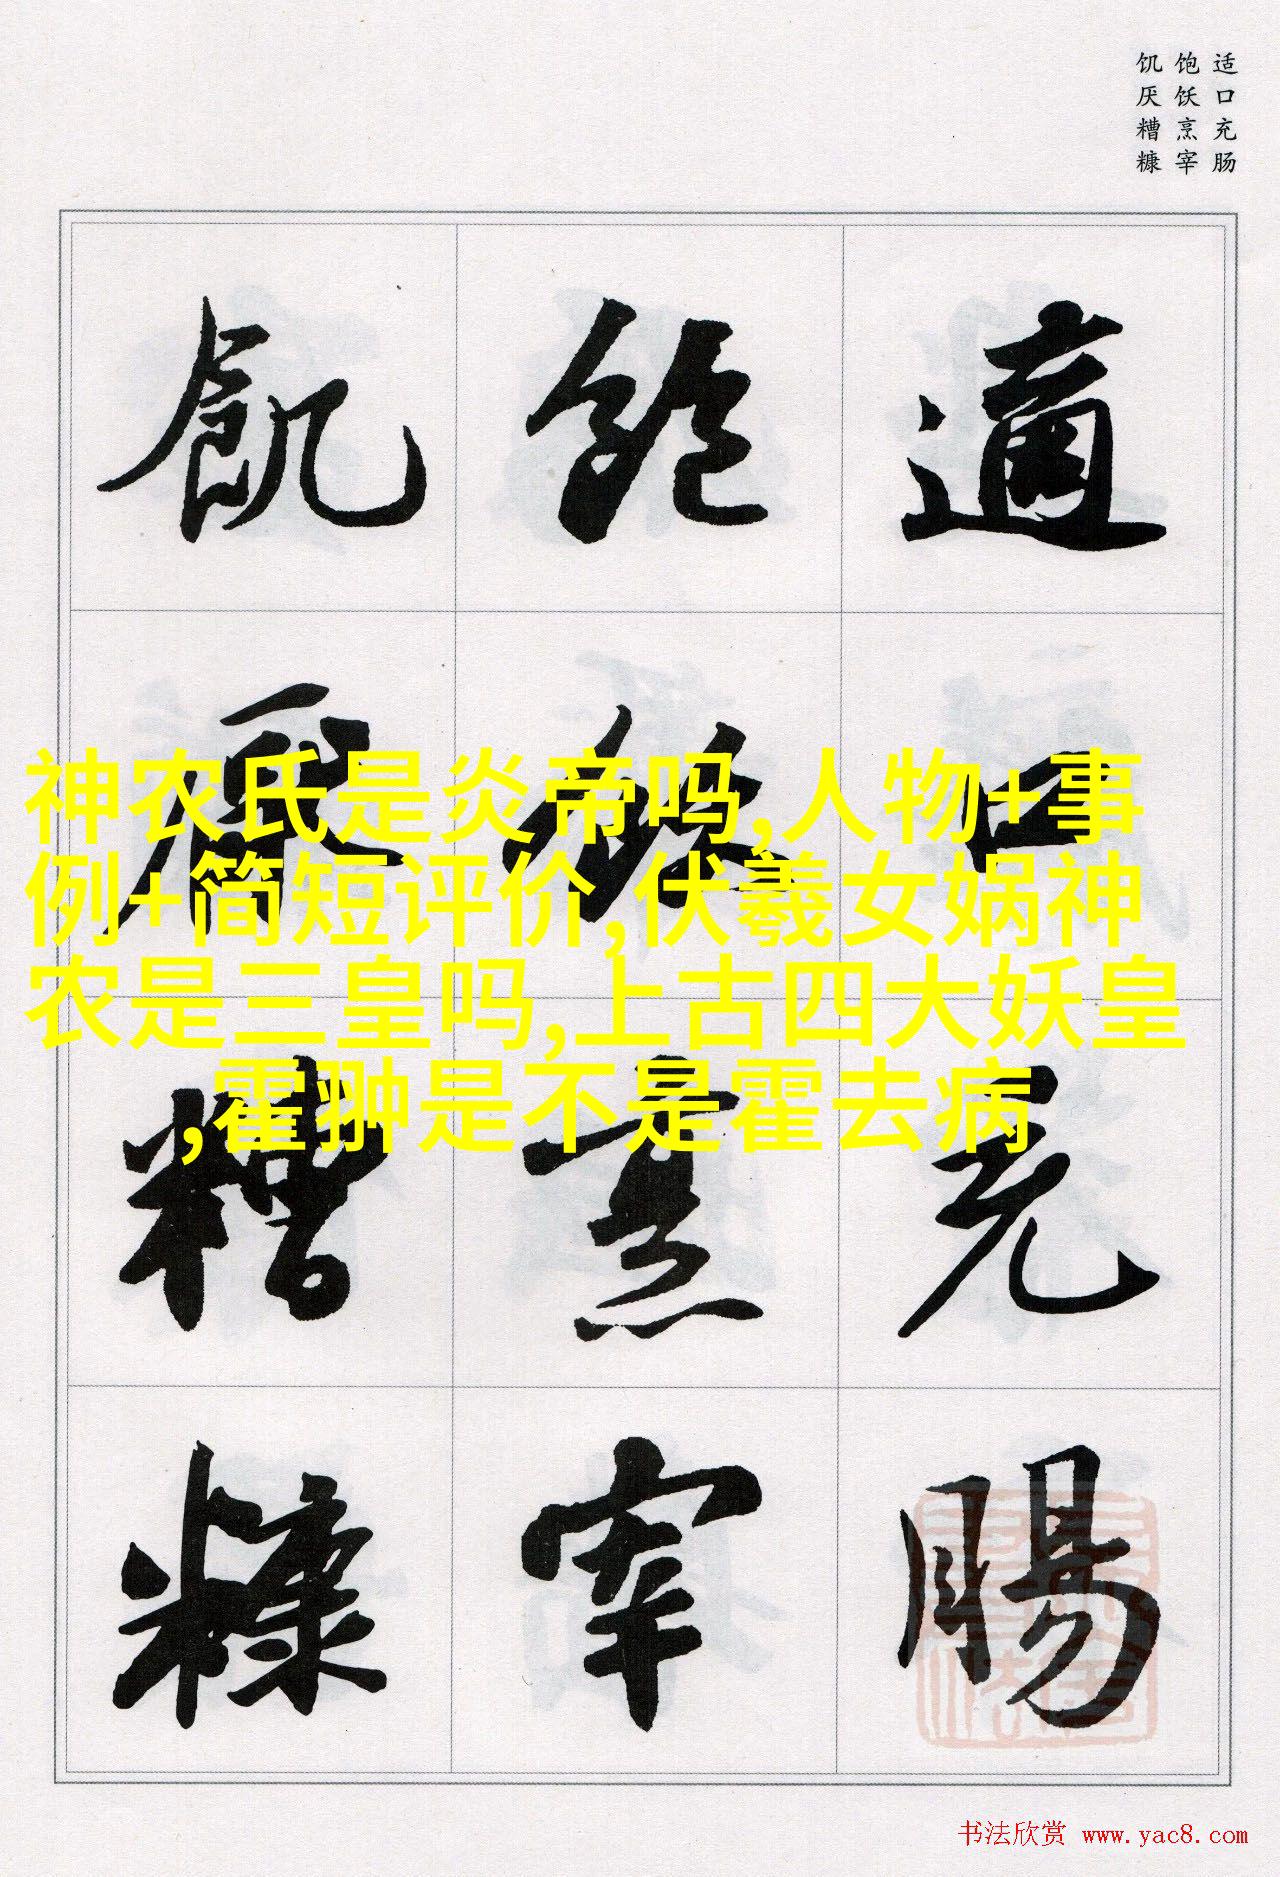 适口充肠
饱饫烹宰
饥厌糟糠
適口充腸
飽飫烹宰
飢厭糟糠
神农氏是炎帝吗,人物+事
例+简短评价,伏羲女娲神
农是三皇吗,上古四大妖皇
,霍翀是不是霍去病
书法欣赏 www.yac8.com